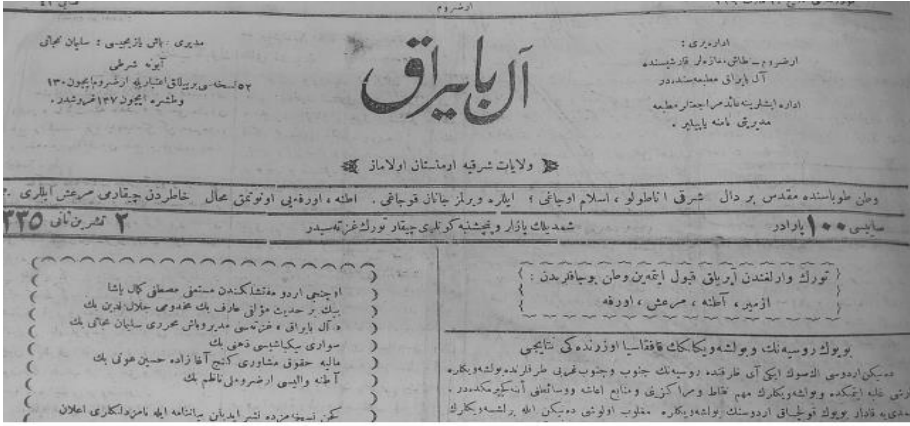 ارضروم
اداره‌یری :
ارضروم - طاش مغازه‌لر قارشیسنده
آل بایراق مطبعه‌سنده‌در
اداره ایشلرینه عائد مراجعتلر مطبعه
مدیریتی نامنه یاپیلیر .
آل بایراق
مدیری ، باش یازیجیسی : سلیمان نجاتی
آبونه شرطی
۵۲ نسخه‌سی بر ییللق اعتباریله ارضروم ایچون ۱۳۰
وطشره ایچون ۱۳۷ غروشدر .
ولایات شرقیه ارمنستان اولاماز
وطن طوباسنده مقدس بر دال شرقی اناطولو ، اسلام اوجاغی ؛ ایللره ویرلز جاناز قوجاغی . اطنه ، اورفه‌یی اونوتمق محال خاطردن چیقارمی مرعش ایللری
سایسی ۱۰۰ پارادر
شمدیلك پازار و پنجشنبه کونلری چیقار تورك غزته‌سیدر
۲ تشرین ثانی ۳۳۵
تورك وارلغندن آیریلق قبول ایتمه‌ین وطن بوجاقلریدن :
ازمیر ، آطنه ، مرعش ، اورفه
بویوك روسیه‌نك و بولشه‌ویکلکك قافقاسیا اوزرنده‌کی نتایجی
ده‌نیکن اردوسی الك صوك ایکی آی ظرفنده روسیه‌نك جنوب وجنوب غربی طرفلرنده بولشه‌ویکلره
قارشی غلبه ایتمکده و بولشه‌ویکلرك مهم نقاط ومراکزینی ومنابع اعاشه ووسائطنی
بویوك قولچاق اردوسنك بولشه‌ویکلره مغلوب اولوشی ده‌نیکن ایله بولشه‌ویکلرك
اوچنجی اردو مفتشلکندن مستعفی مصطفی کمال پاشا
بیك بر حدیث مؤلفی عارف بك مخدومی جلال الدین بك
« آل بایراق » غزته‌سی مدیر وباش محرری سلیمان نجاتی بك
سواری بیکباشیسی ذهنی بك
مالیه حقوق مشاوری کنج آغا زاده حسین عونی بك
آطنه والیسی ارضروملی ناظم بك
کچن نسخه‌مزده نشر ایدیلن بیاننامه ایله نامزدلکلری اعلان